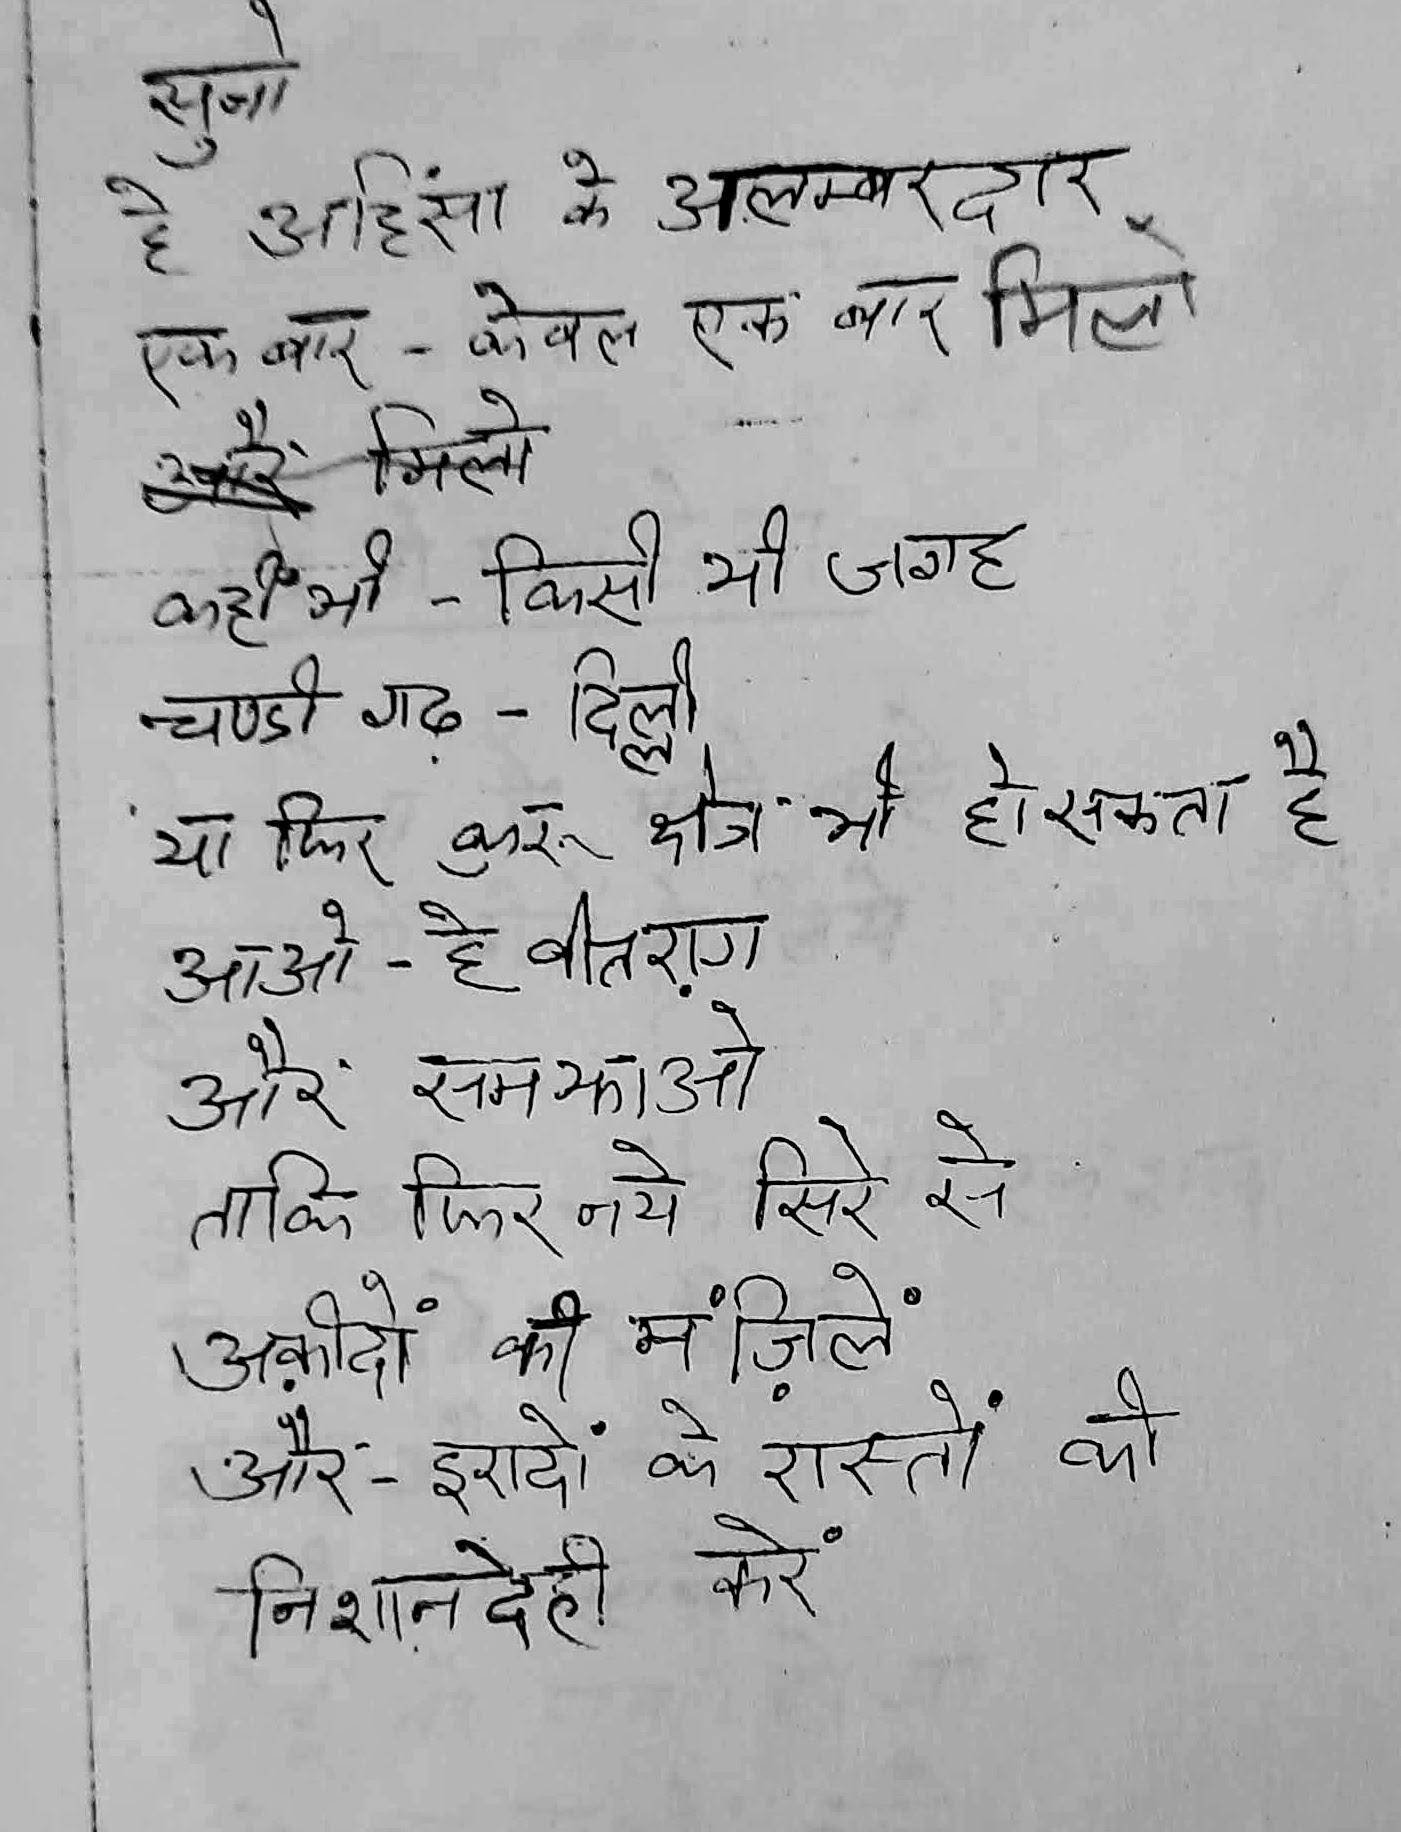 सुनो
हे अहिंसा के अलम्बरदार
एक बार - केवल एक बार मिलो
और मिलो
कहीं भी - किसी भी जगह
चण्डी गढ़ - दिल्ली
या फिर कुरू क्षेत्र भी हो सकता है
आओ - हे वीतराग
और समझाओ
ताकि फिर नये सिरे से
अक़ीदों की मंज़िलें
और - इरादों के रास्तों की
निशानदेही करें